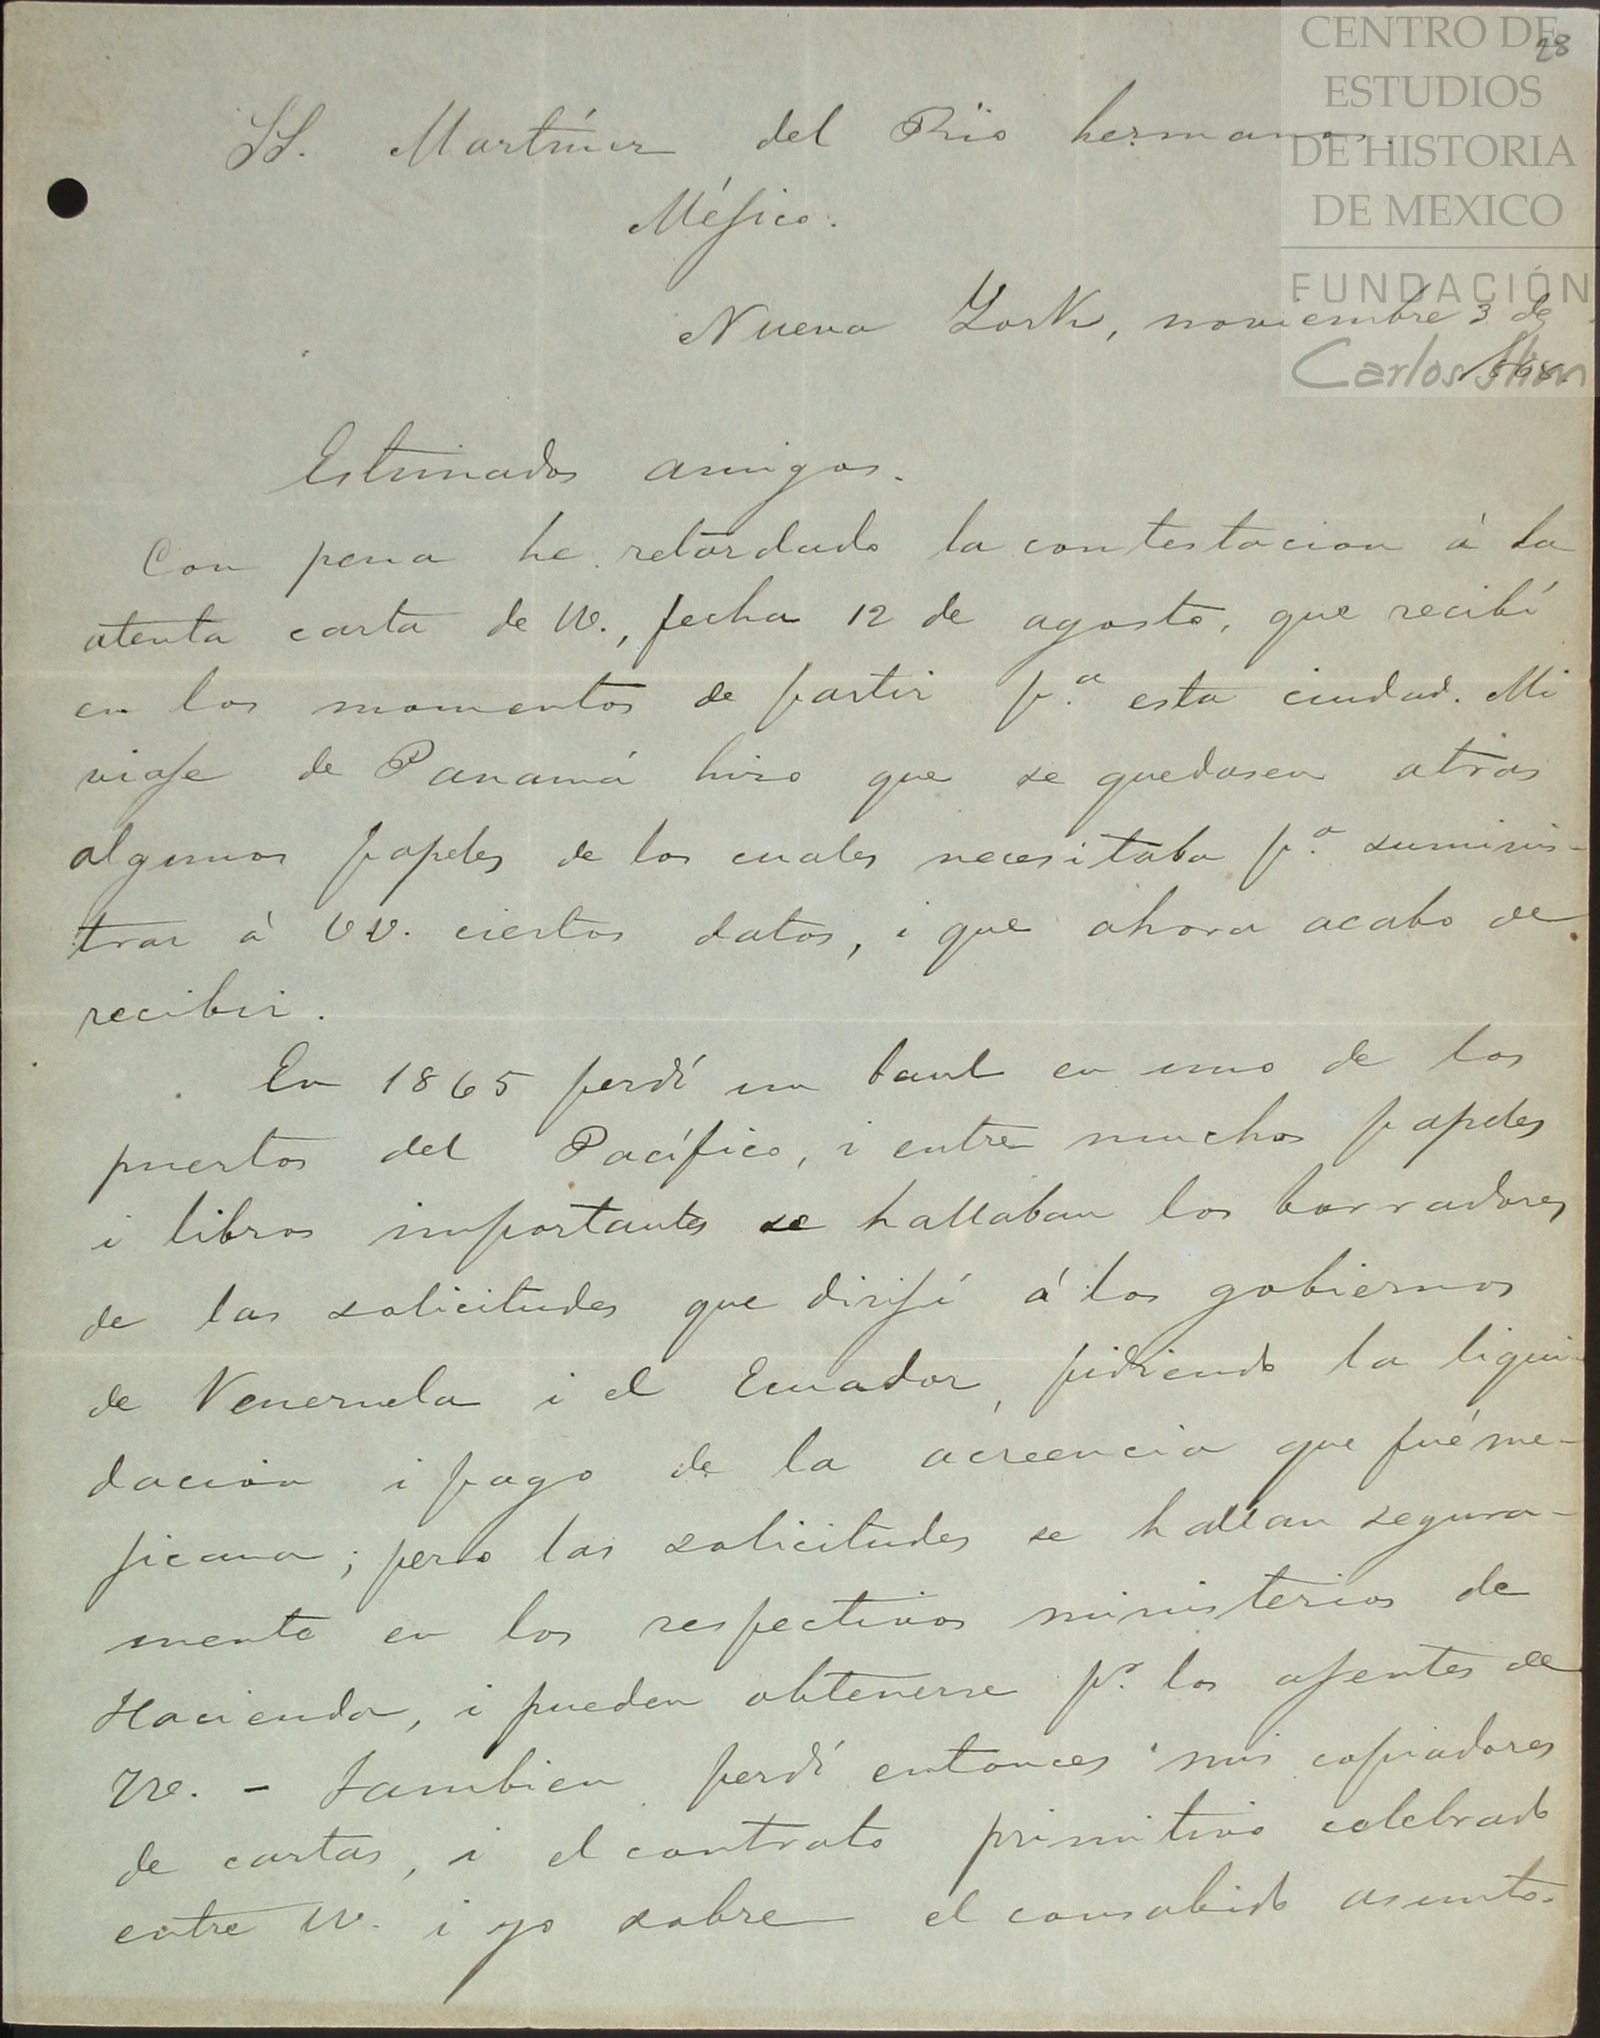 CENTRO DE
ESTUDIOS
DE HISTORIA
DE MEXICO
FUNDACIÓN
Carlos Slim
28
SS. Martínez del Rio hermanos.
Méjico.
Nueva York, noviembre 3 de
1868.
Estimados amigos.
Con pena he retardado la contestacion á la
atenta carta de VV., fecha 12 de agosto, que recibí
en los momentos de partir p.ª esta ciudad. Mi
viaje de Panamá hizo que se quedasen atras
algunos papeles de los cuales necesitaba p.ª suminis-
trar á VV. ciertos datos, i que ahora acabo de
recibir.
En 1865 perdí un baul en uno de los
puertos del Pacífico, i entre muchos papeles
i libros importantes se hallaban los borradores
de las solicitudes que dirijí á los gobiernos
de Venezuela i el Ecuador, pidiendo la liqui-
dacion i pago de la acreencia que fué me-
jicana; pero las solicitudes se hallan segura-
mente en los respectivos ministerios de
Hacienda, i pueden obtenerse p.r los ajentes de
VV. - Tambien perdí entonces mis copiadores
de cartas, i el contrato primitivo celebrado
entre VV. i yo sobre el consabido asunto.